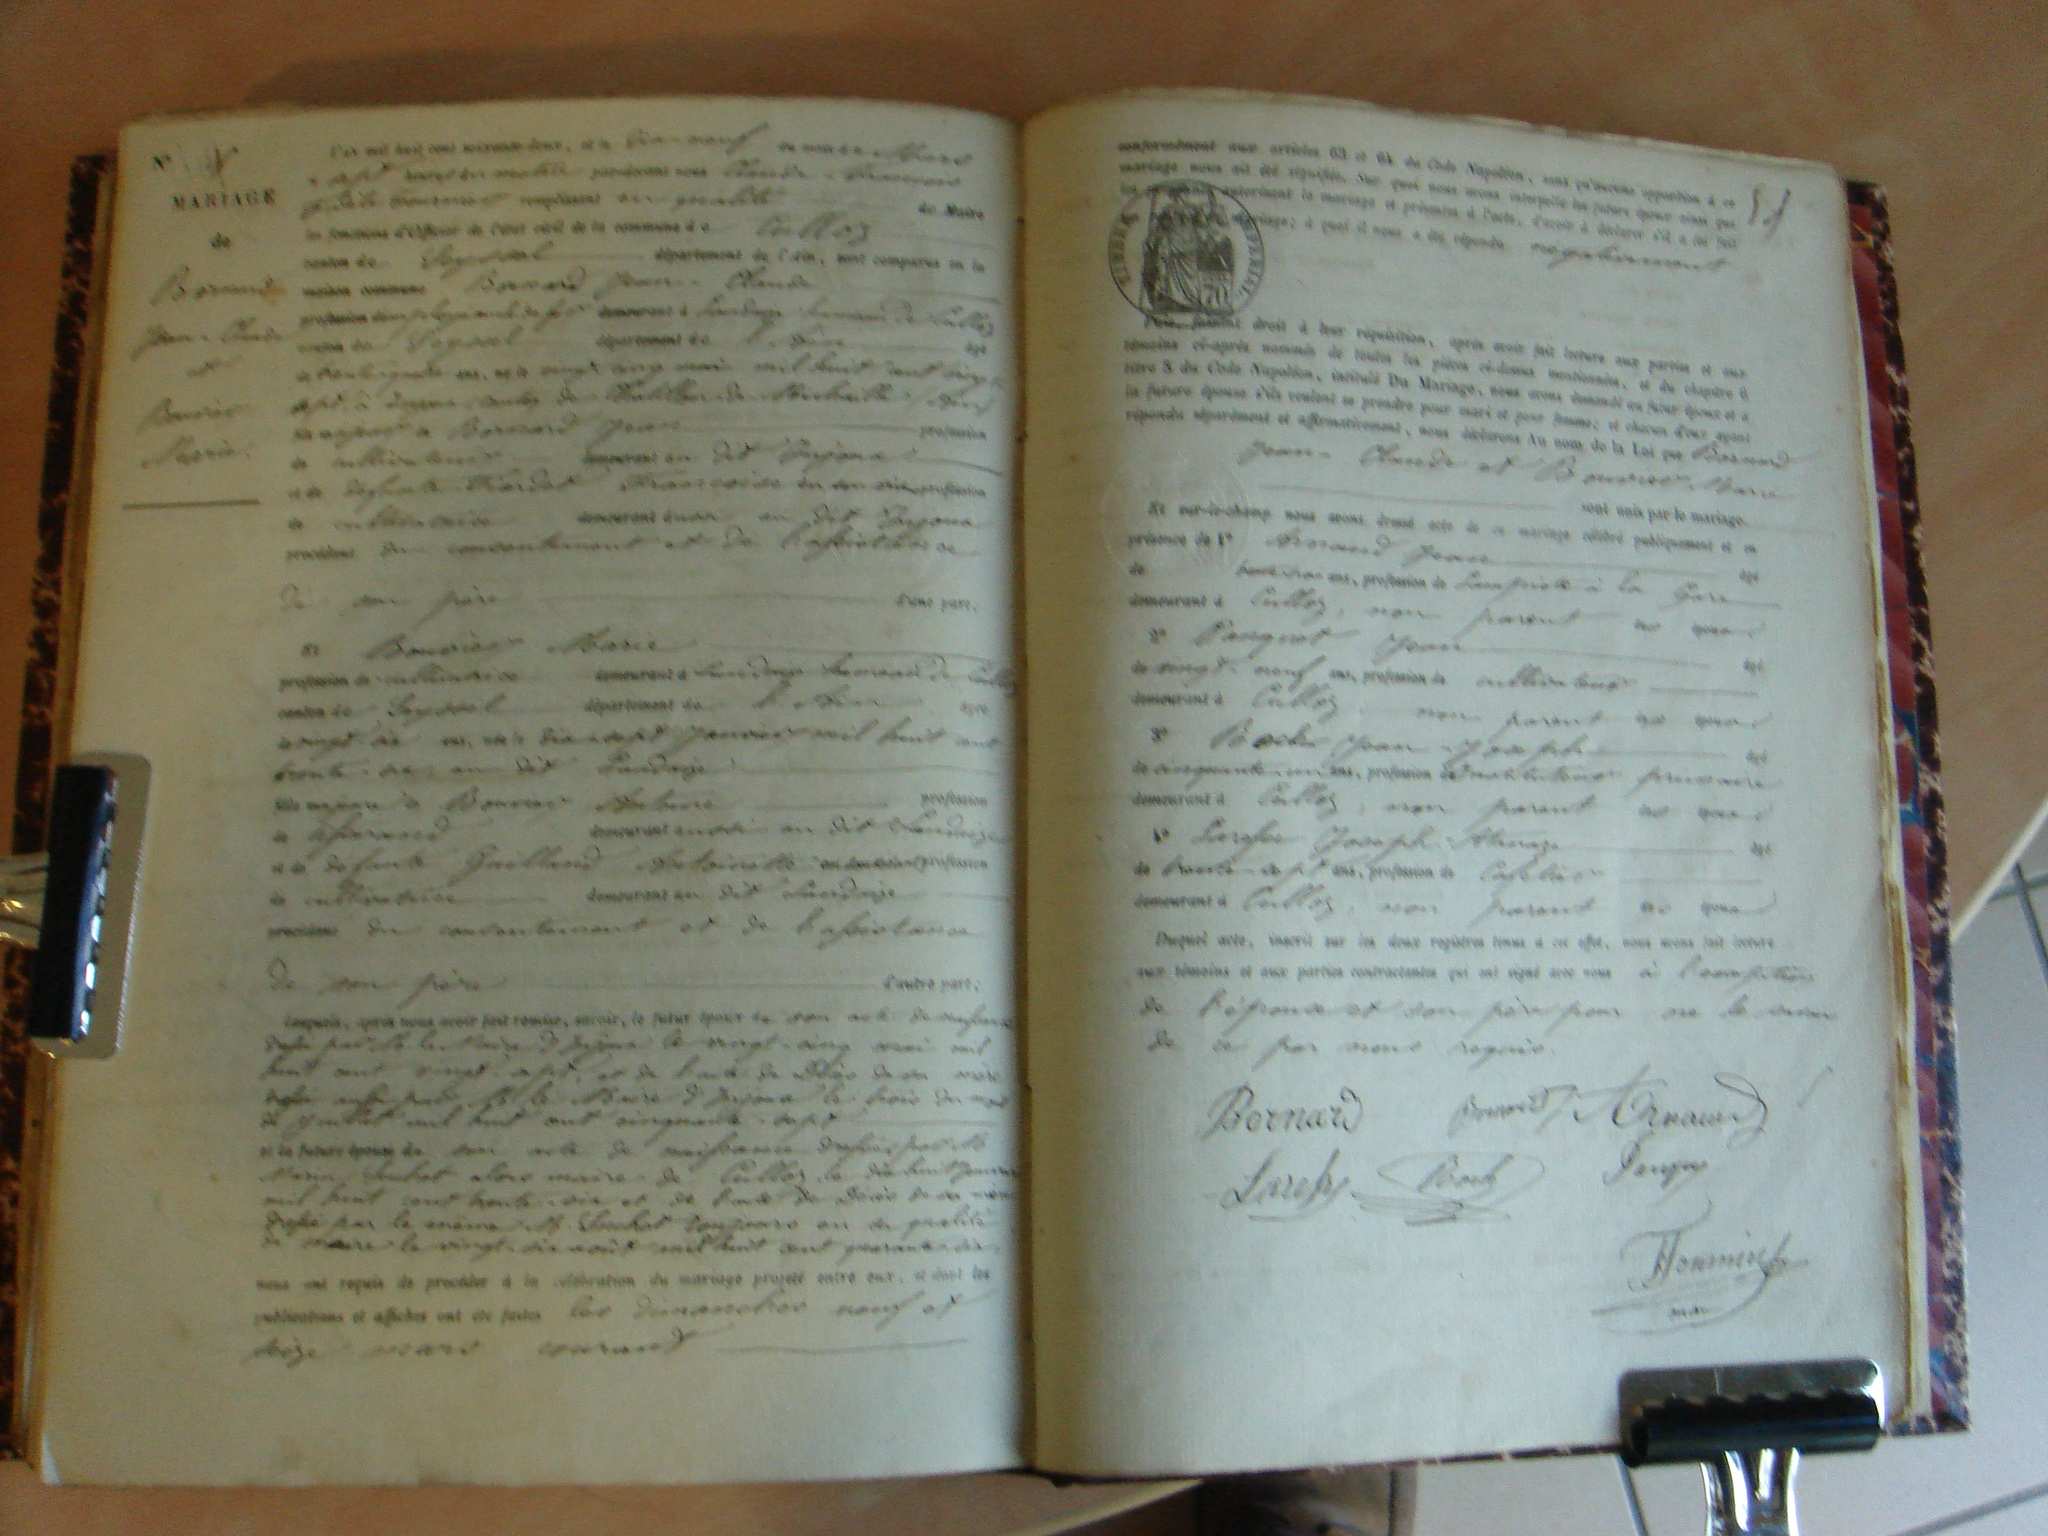 N°
MARIAGE
de
Bornard
Jean-Claude
et
Bouvier
Marie.
L'an mil huit cent soixante-deux, et le dix-neuf du mois de Mars
à sept heures du matin pardevant nous Claude-François
remplissant en qualité de Maire
les fonctions d'Officier de l'état civil de la commune de Culloz
canton de Seyssel département de l'Ain, sont comparus en la
maison commune Bornard Jean-Claude
profession d'employé demeurant à Landaize hameau de Culloz
canton de Seyssel département de l'Ain âgé
de ans, né le vingt cinq mai mil huit cent vingt
sept à canton de Châtillon-de-Michaille (Ain)
fils majeur de Bornard Jean profession
de cultivateur demeurant au dit Injoux
et de défunte Françoise en son vivant profession
de cultivatrice demeurant aussi au dit Injoux
procédant du consentement et de l'assistance
de son père d'une part.
Et Bouvier Marie
profession de cultivatrice demeurant à Landaize hameau de Culloz
canton de Seyssel département de l'Ain âgée
de vingt six ans, née le dix-sept janvier mil huit cent
trente-six au dit Landaize
fille majeure de Bouvier Antoine profession
de demeurant aussi au dit Landaize
et de défunte Gailland Antoinette en son vivant profession
de cultivatrice demeurant au dit Landaize
procédant du consentement et de l'assistance
de son père d'autre part;
Lesquels, après nous avoir fait remise, savoir, le futur époux de son acte de naissance
dressé par M. le Maire d'Injoux le vingt-cinq mai mil
huit cent vingt-sept, et de l'acte de Décès de sa mère
dressé par M. le Maire d'Injoux le trois du mois
de juillet mil huit cent cinquante-sept
et la future épouse de son acte de naissance dressé par M.
alors maire de Culloz le dix-huit janvier
mil huit cent trente-six et de l'acte de Décès de sa mère
dressé par le même M. toujours en sa qualité
de maire le vingt-six août mil huit cent quarante-six
nous ont requis de procéder à la célébration du mariage projeté entre eux, et dont les
publications et affiches ont été faites les dimanches neuf et
seize mars courant
conformément aux articles 63 et 64 du Code Napoléon, sans qu'aucune opposition à ce
mariage nous ait été signifiée. Sur quoi nous avons interpellé les futurs époux ainsi que
les autorisant le mariage et présentes à l'acte, d'avoir à déclarer s'il a été fait
mariage; à quoi il nous a été répondu négativement
TIMBRE IMPERIAL
70
Puis, faisant droit à leur réquisition, après avoir fait lecture aux parties et aux
témoins ci-après nommés de toutes les pièces ci-dessus mentionnées, et du chapitre 6
titre 5 du Code Napoléon, intitulé Du Mariage, nous avons demandé au futur époux et à
la future épouse s'ils veulent se prendre pour mari et pour femme; et chacun d'eux ayant
répondu séparément et affirmativement, nous déclarons Au nom de la Loi que Bornard
Jean-Claude et Bouvier Marie
sont unis par le mariage.
Et sur-le-champ nous avons dressé acte de ce mariage célébré publiquement et en
présence de 1° Arnaud Jean âgé
de ans, profession de Lampiste à la Gare
demeurant à Culloz, non parent des époux
2° Jean âgé
de vingt-neuf ans, profession de cultivateur
demeurant à Culloz, non parent des époux
3° Roch Jean-Joseph âgé
de cinquante-un ans, profession d'instituteur primaire
demeurant à Culloz, non parent des époux
4° Joseph âgé
de trente-sept ans, profession de Cafetier
demeurant à Culloz, non parent des époux
Duquel acte, inscrit sur les deux registres tenus à cet effet, nous avons fait lecture
aux témoins et aux parties contractantes qui ont signé avec nous à l'exception
de l'épouse et son père pour ne le savoir
de ce par nous requis.
Bornard Arnaud
Roch